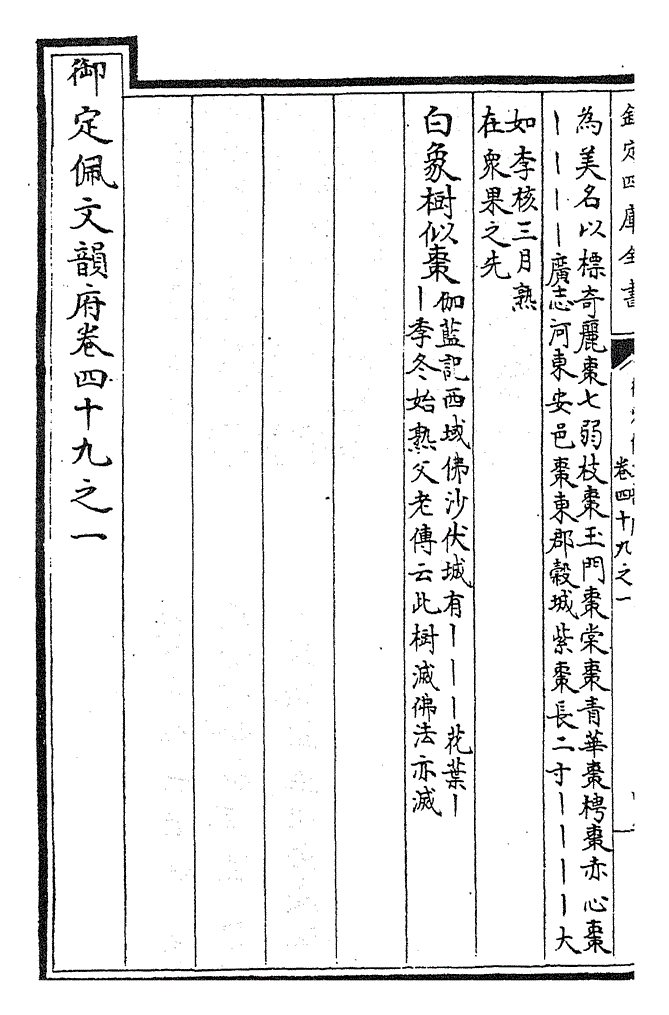 欽定四庫全書
卷四十九之一
為美名以標奇麗棗七弱枝棗玉門棗棠棗青華棗梬棗赤心棗
丨丨丨丨廣志河東安邑棗東郡穀城紫棗長二寸丨丨丨丨大
如李核三月熟
在衆果之先
白象樹似棗
伽藍記西域佛沙伏城有丨丨丨花葉丨
丨季冬始熟父老傳云此樹滅佛法亦滅
御定佩文韻府卷四十九之一